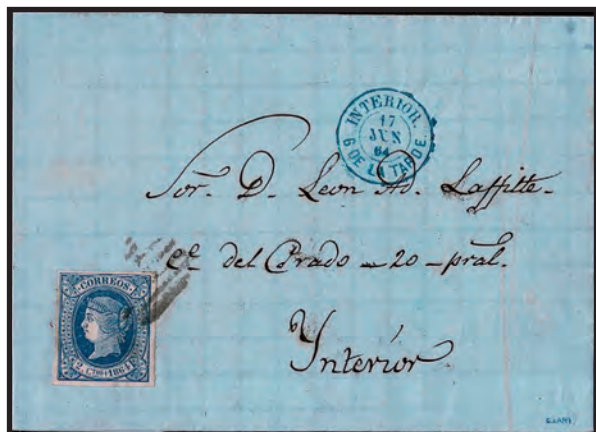 INTERIOR.
17
JUN
64
6 DE LA TARDE
Sor. D. Leon Ad. Laffitte.
Ce del Prado - 20 - pral.
Interior.
CORREOS
2 CUOS 1864